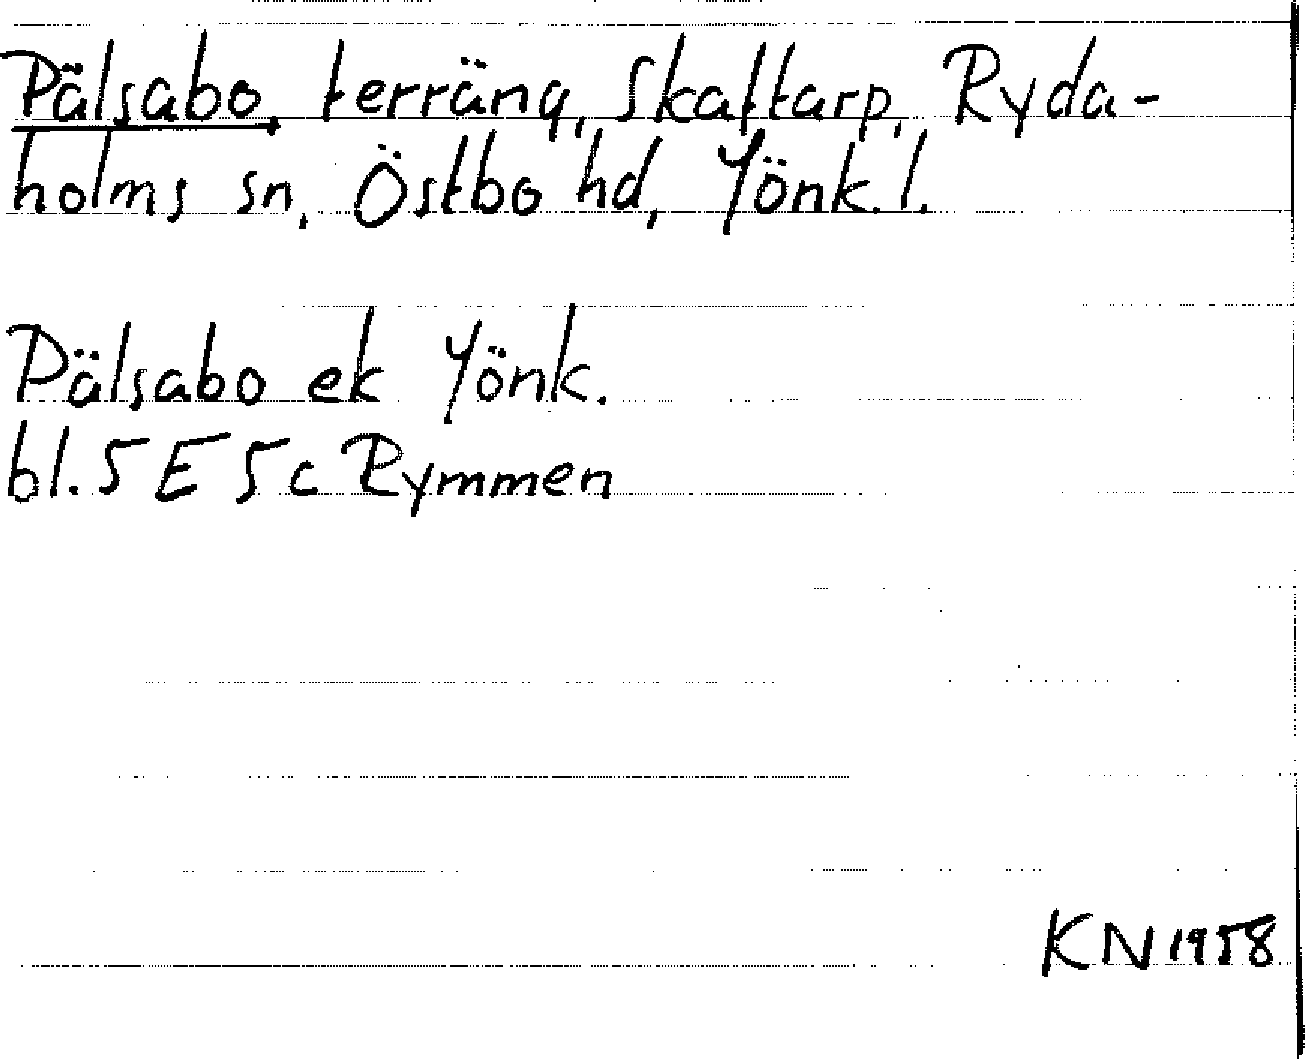 Pälsabo, terräng, Skaftarp, Ryda-
holms sn, Östbo hd, Jönk. l.
Pälsabo ek Jönk.
bl. 5 E 5 c Rymmen
KN 1958